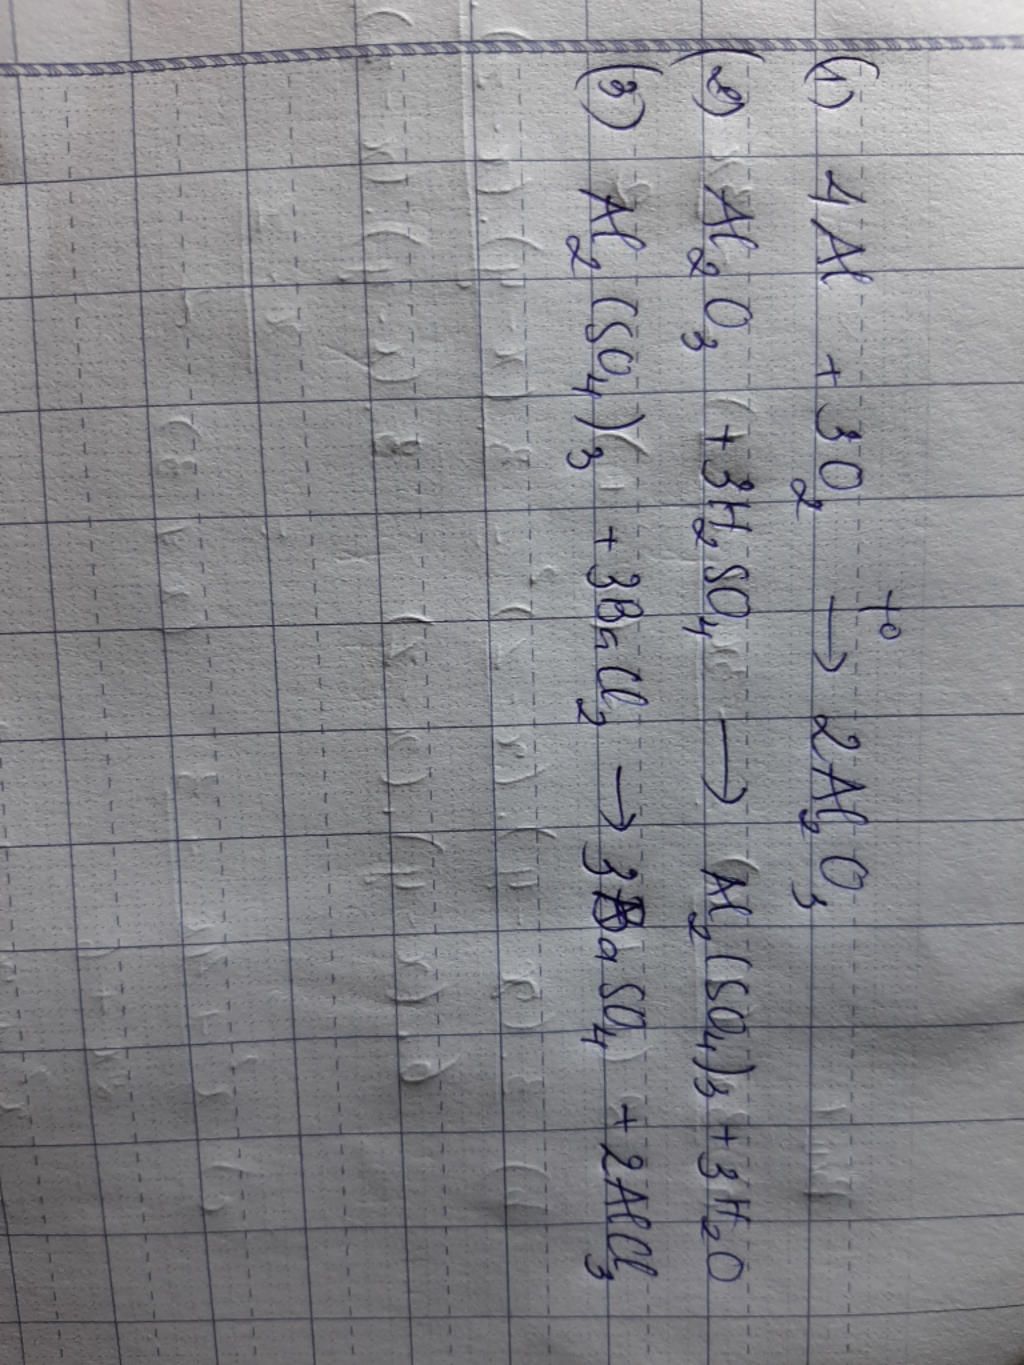 (1) 4Al + 3O₂ →(t°) 2Al₂O₃
(2) Al₂O₃ + 3H₂SO₄ → Al₂(SO₄)₃ + 3H₂O
(3) Al₂(SO₄)₃ + 3BaCl₂ → 3BaSO₄ + 2AlCl₃